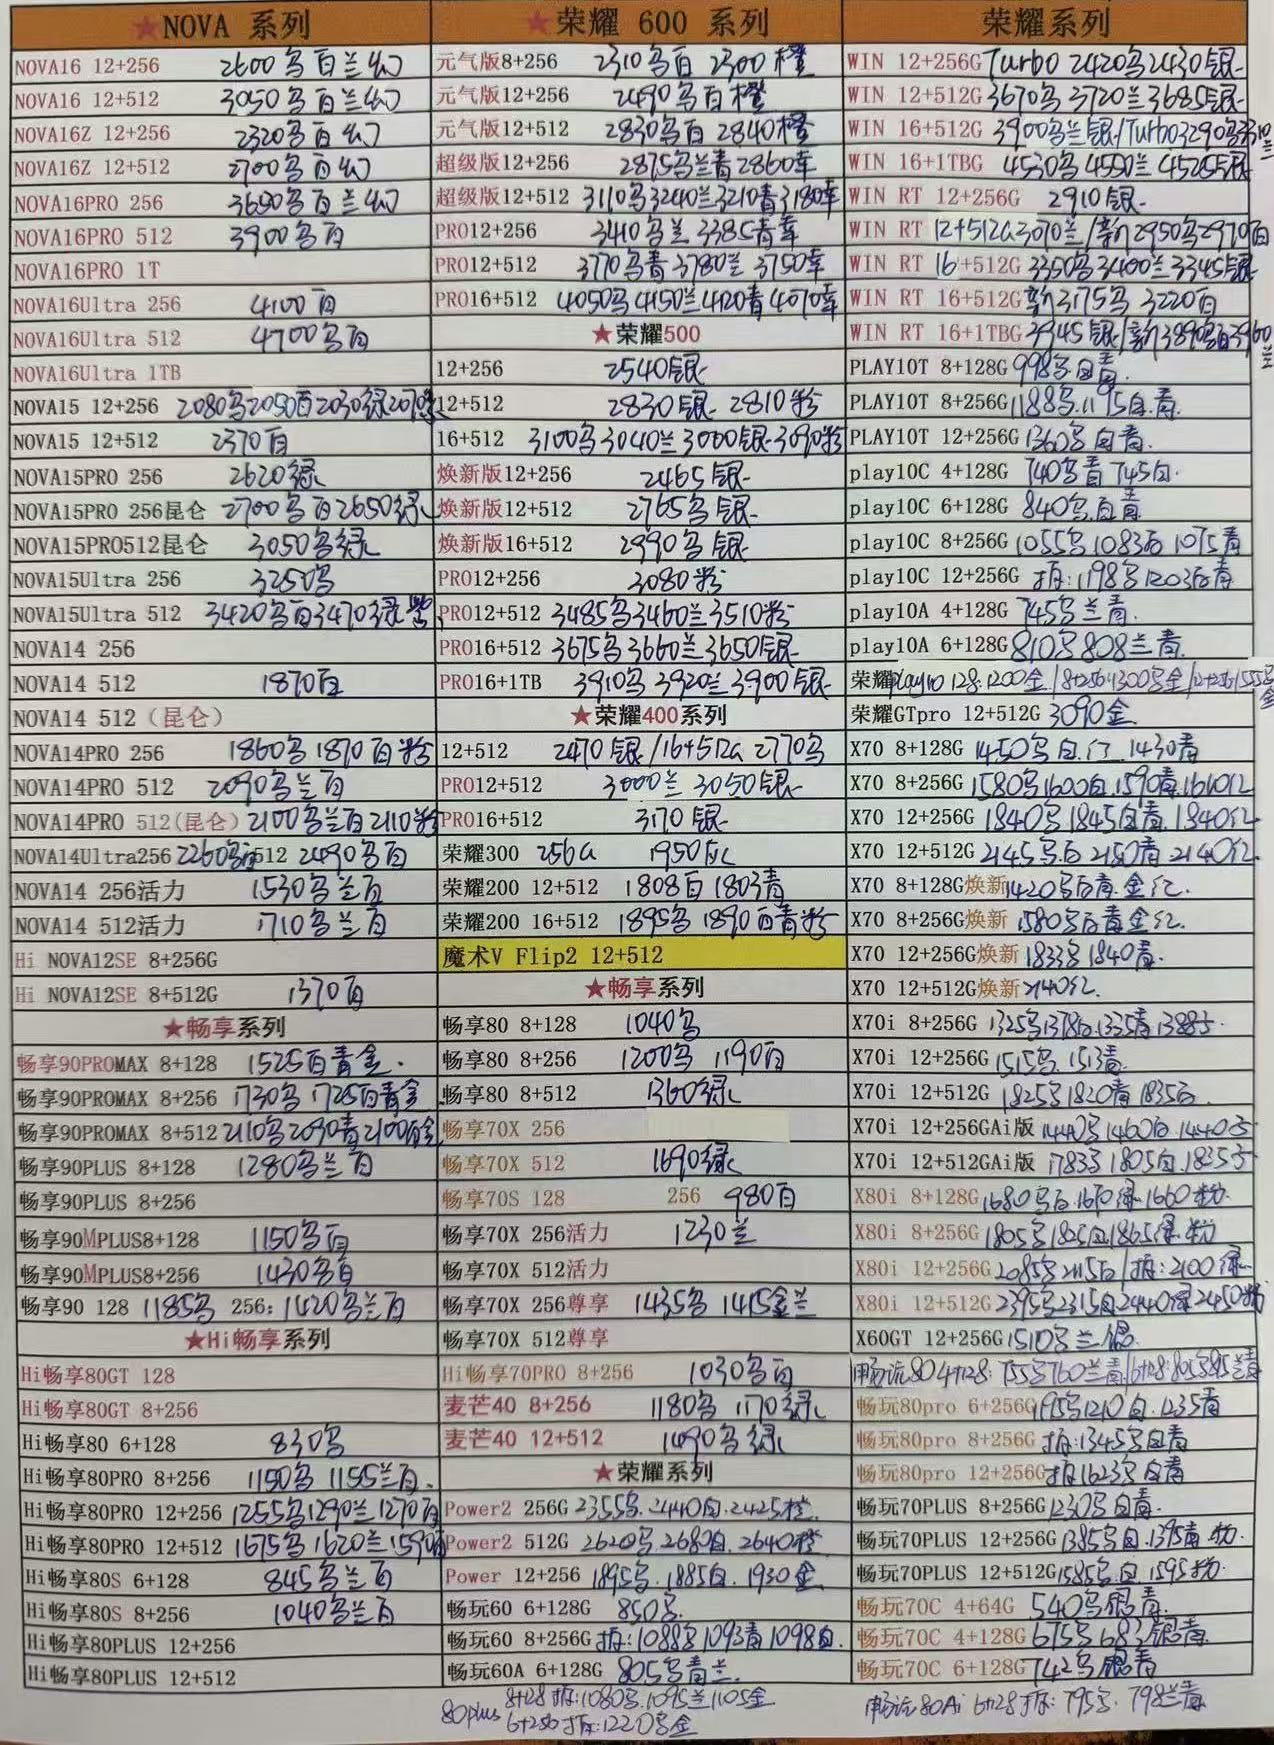 ★NOVA 系列
NOVA16 12+256 2600乌百兰幻
NOVA16 12+512 3050乌百兰幻
NOVA16Z 12+256 2320乌百幻
NOVA16Z 12+512 2700乌百幻
NOVA16PRO 256 3650乌百兰幻
NOVA16PRO 512 3900乌百
NOVA16PRO 1T
NOVA16Ultra 256 4100百
NOVA16Ultra 512 4700乌百
NOVA16Ultra 1TB
NOVA15 12+256 2080乌2050百2030绿2070
NOVA15 12+512 2370百
NOVA15PRO 256 2620绿
NOVA15PRO 256昆仑 2700乌百2650绿
NOVA15PRO512昆仑 3050乌绿
NOVA15Ultra 256 3250乌
NOVA15Ultra 512 3420乌百3470绿紫
NOVA14 256
NOVA14 512 1870百
NOVA14 512（昆仑）
NOVA14PRO 256 1860乌1870百粉
NOVA14PRO 512 2090乌兰百
NOVA14PRO 512(昆仑) 2100乌兰百2110粉
NOVA14Ultra256 2260乌百512 2490乌百
NOVA14 256活力 1530乌兰百
NOVA14 512活力 1710乌兰百
Hi NOVA12SE 8+256G
Hi NOVA12SE 8+512G 1370百
★畅享系列
畅享90PROMAX 8+128 1525百青金.
畅享90PROMAX 8+256 1730乌1725百青金
畅享90PROMAX 8+512 2110乌2090青2100百金
畅享90PLUS 8+128 1280乌兰百
畅享90PLUS 8+256
畅享90MPLUS8+128 1150乌百
畅享90MPLUS8+256 1430乌百
畅享90 128 1185乌 256: 1420乌兰百
★Hi畅享系列
Hi畅享80GT 128
Hi畅享80GT 8+256
Hi畅享80 6+128 830乌
Hi畅享80PRO 8+256 1150乌 1155兰百.
Hi畅享80PRO 12+256 1255乌1290兰1270百
Hi畅享80PRO 12+512 1675乌1620兰1590百
Hi畅享80S 6+128 845乌兰百
Hi畅享80S 8+256 1040乌兰百
Hi畅享80PLUS 12+256
Hi畅享80PLUS 12+512
★荣耀 600 系列
元气版8+256 2310乌百 2300橙
元气版12+256 2490乌百橙
元气版12+512 2830乌百 2840橙
超级版12+256 2875乌兰青2860幸
超级版12+512 3110乌3240兰3210青3180幸
PRO12+256 3410乌兰 3385青幸
PRO12+512 3770乌青3780兰 3750幸
PRO16+512 4050乌4150兰4120青4070幸
★荣耀500
12+256 2540银
12+512 2830银 2810粉
16+512 3100乌3040兰3000银3090粉
焕新版12+256 2465银
焕新版12+512 2765乌银
焕新版16+512 2990乌银
PRO12+256 3080粉
PRO12+512 3485乌3460兰3510粉
PRO16+512 3675乌3660兰3650银
PRO16+1TB 3910乌3920兰3900银
★荣耀400系列
12+512 2470银/16+512G 2770乌
PRO12+512 3000兰 3050银
PRO16+512 3170银
荣耀300 256G 1950灰
荣耀200 12+512 1808百1803青
荣耀200 16+512 1895乌1890百青粉
魔术V Flip2 12+512
★畅享系列
畅享80 8+128 1040乌
畅享80 8+256 1200乌 1190百
畅享80 8+512 1360绿
畅享70X 256
畅享70X 512 1690绿
畅享70S 128 256 980百
畅享70X 256活力 1230兰
畅享70X 512活力
畅享70X 256尊享 1435乌1415金兰
畅享70X 512尊享
Hi畅享70PRO 8+256 1030乌百
麦芒40 8+256 1180乌 1170绿
麦芒40 12+512 1490乌绿
★荣耀系列
Power2 256G 2355乌.2440白.2425橙.
Power2 512G 2620乌.2680白.2640橙
Power 12+256 1895乌.1885白.1930金
畅玩60 6+128G 850乌.
畅玩60 8+256G 拆:1088乌1093青1098白.
畅玩60A 6+128G 805乌青兰.
80plus 8+128拆:1080乌.1095兰1105金
6+256拆:1220乌金
荣耀系列
WIN 12+256G Turbo 2420乌2430银
WIN 12+512G 3670乌 3720兰3685银
WIN 16+512G 3900乌兰银/Turbo3290乌3310兰
WIN 16+1TBG 4530乌4550兰 4525银
WIN RT 12+256G 2910银
WIN RT 12+512G3070兰/新2950乌2970百
WIN RT 16+512G 3350乌3400兰3345银
WIN RT 16+512G新3175乌 3220百
WIN RT 16+1TBG 3945银/新3890乌百3960兰
PLAY10T 8+128G 998乌白青.
PLAY10T 8+256G 1188乌.1195白.青.
PLAY10T 12+256G 1360乌白青.
play10C 4+128G 740乌青745白.
play10C 6+128G 840乌.白青
play10C 8+256G 1055乌1083百1075青
play10C 12+256G 拆:1198乌1203百青
play10A 4+128G 745乌兰青.
play10A 6+128G 810乌808兰青.
荣耀play10 128:1200金/8+256:1300乌金/12+256/1555乌金
荣耀GTpro 12+512G 3090金.
X70 8+128G 1450乌白.红.1430青
X70 8+256G 1580乌1600白.1590青.1610红
X70 12+256G 1840乌1845白青.1840红
X70 12+512G 2145乌百2150青2140红.
X70 8+128G焕新1420乌百青.金红.
X70 8+256G焕新 1580乌百青金红.
X70 12+256G焕新1833乌1840青.
X70 12+512G焕新2140红.
X70i 8+256G 1325乌1378百.1335青1388
X70i 12+256G 1515乌.1513青.
X70i 12+512G 1825乌1820青1835百.
X70i 12+256GAi版 1440乌1460百.1440
X70i 12+512GAi版 1783乌1805白.1835
X80i 8+128G 1680乌百.1670绿1660粉.
X80i 8+256G 1805乌1825白1865绿.粉
X80i 12+256G 2085乌2115百/拆:2100绿
X80i 12+512G 2395乌2315白2440绿2450粉
X60GT 12+256G 1510乌兰银.
畅玩80 4+128: 755乌760兰青/6+128:805乌815兰青
畅玩80pro 6+256G 1195乌1210白.1235青
畅玩80pro 8+256G 拆:1345乌白青
畅玩80pro 12+256G拆1623乌白青
畅玩70PLUS 8+256G 1230乌白青.
畅玩70PLUS 12+256G 1385乌白.1395青.粉.
畅玩70PLUS 12+512G 1585乌.白.1595粉.
畅玩70C 4+64G 540乌银青.
畅玩70C 4+128G 675乌683银青.
畅玩70C 6+128G 742乌银青
畅玩80Ai 6+128拆:795乌.798兰青